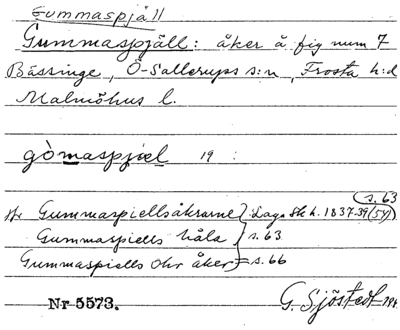 Gummaspjäll
Gummaspjäll: åker å fig num 7
Bässinge, Ö-Sallerups s:n, Frosta h:d
Malmöhus l.
gòmaspjœl 19 :
s. 63
Gummaspiellsåkrarne} Laga Sk h. 1837-39 (54)
Gummaspiells håla } s. 63
Gummaspiells ohr åker = s. 66
Nr 5573. G. Sjöstedt